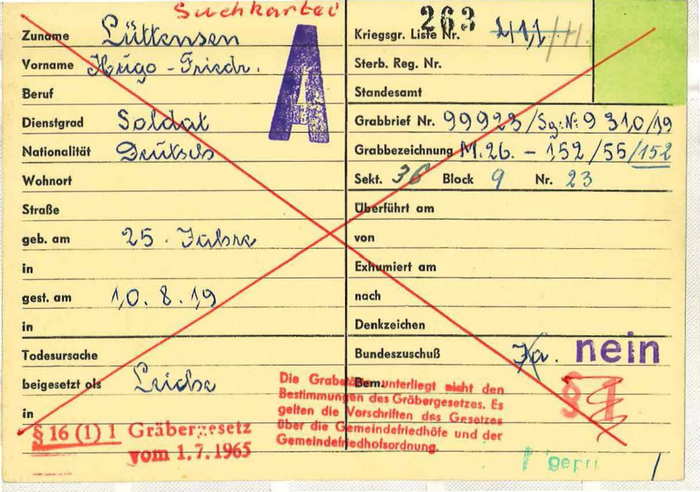 Suchkartei
Zuname Lüttensen
Vorname Hugo-Friedr.
Beruf
Dienstgrad Soldat
Nationalität Deutsch
Wohnort
Straße
geb. am 25 Jahre
in
gest. am 10.8.19
in
Todesursache
beigesetzt als Leiche
in
§ 16 (1) 1 Gräbergesetz
vom 1.7.1965
A
263
Kriegsgr. Liste Nr.
Sterb. Reg. Nr.
Standesamt
Grabbrief Nr. 99923/Sg.Nr. 9310/19
Grabbezeichnung M.26. - 152/55/152
Sekt. 36 Block 9 Nr. 23
Überführt am
von
Exhumiert am
nach
Denkzeichen
Bundeszuschuß nein
Bem.
§ 1
Die Grabstätte unterliegt nicht den
Bestimmungen des Gräbergesetzes. Es
gelten die Vorschriften des Gesetzes
über die Gemeindefriedhöfe und der
Gemeindefriedhofsordnung.